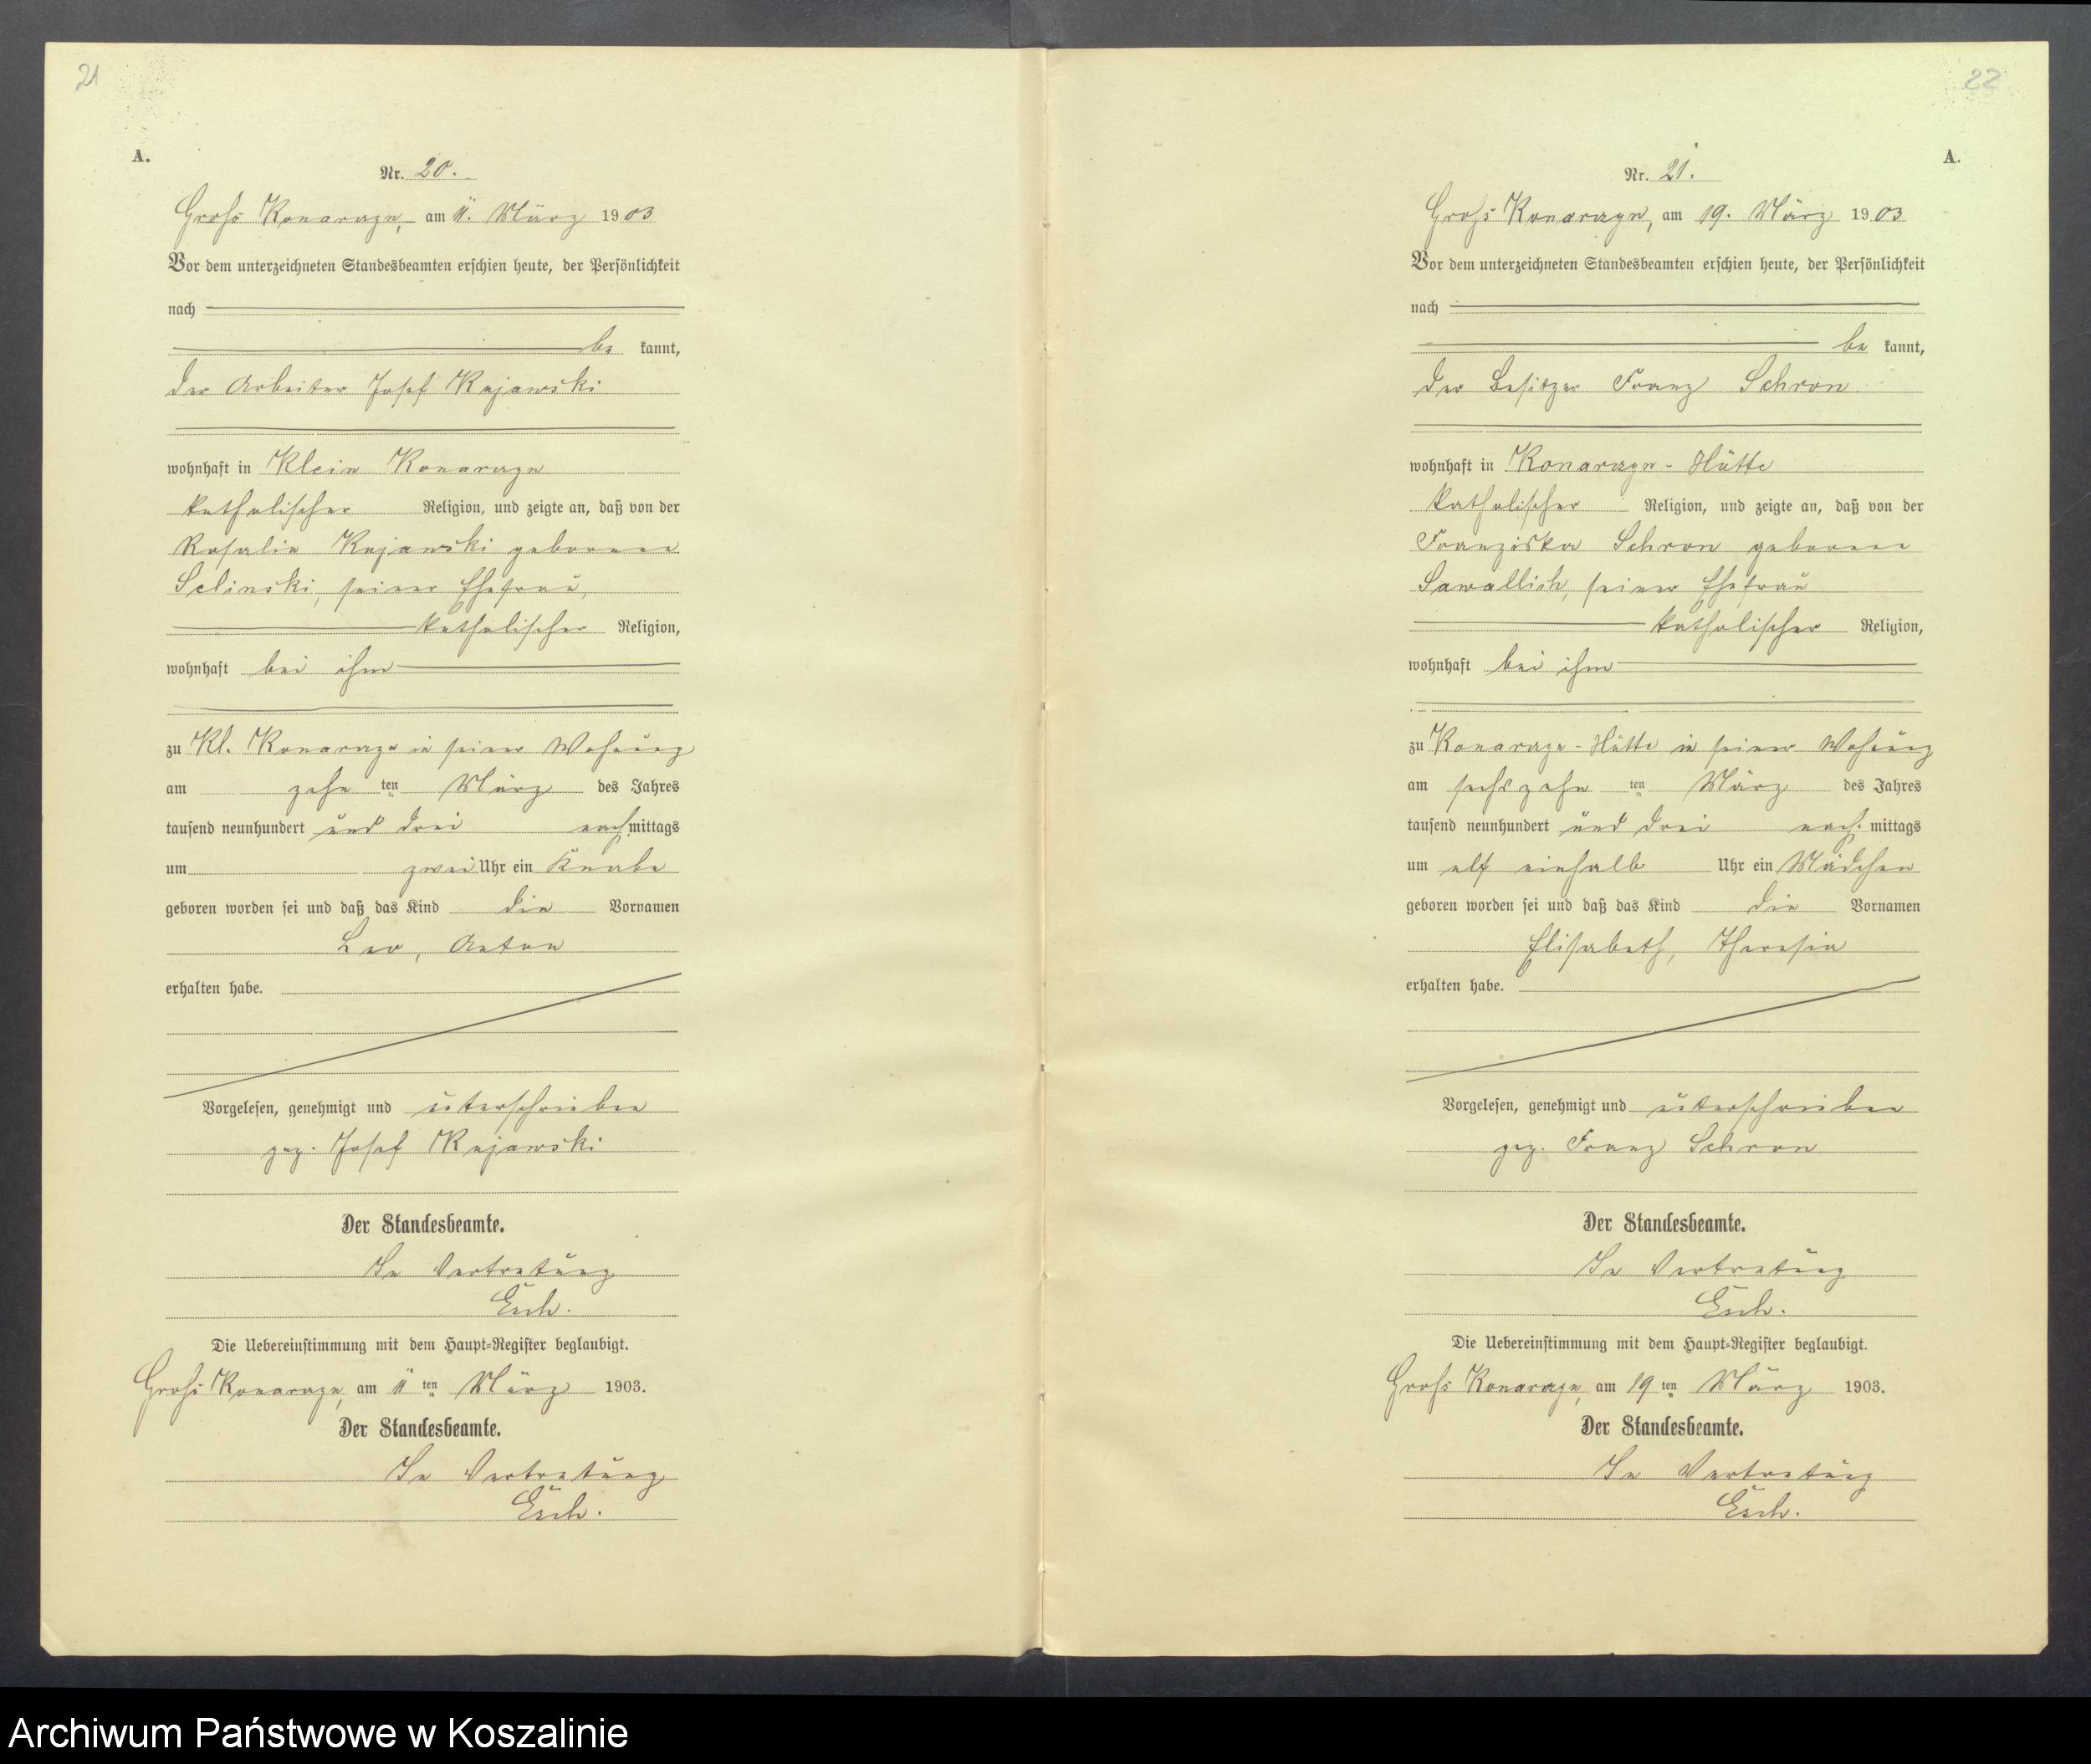 21
A.
Nr. 20.
Groß Konarzyn, am 11. März 1903
Vor dem unterzeichneten Standesbeamten erschien heute, der Persönlichkeit
nach
be kannt,
der Arbeiter Josef Kujawski
wohnhaft in Klein Konarzyn
katholischer Religion, und zeigte an, daß von der
Rosalie Kujawski geborene
Selinski, seiner Ehefrau,
katholischer Religion,
wohnhaft bei ihm
zu Kl. Konarzyn in seiner Wohnung
am zehn ten März des Jahres
tausend neunhundert und drei nachmittags
um zwei Uhr ein Knabe
geboren worden sei und daß das Kind die Vornamen
Leo, Anton
erhalten habe.
Vorgelesen, genehmigt und unterschrieben
gez. Josef Kujawski
Der Standesbeamte.
In Vertretung
Esch.
Die Uebereinstimmung mit dem Haupt-Register beglaubigt.
Groß Konarzyn, am 11 ten März 1903.
Der Standesbeamte.
In Vertretung
Esch.
22
A.
Nr. 21.
Groß Konarzyn, am 19. März 1903
Vor dem unterzeichneten Standesbeamten erschien heute, der Persönlichkeit
nach
be kannt,
der Besitzer Franz Schron
wohnhaft in Konarzyn-Hütte
katholischer Religion, und zeigte an, daß von der
Franziska Schron geborene
Sawallich, seiner Ehefrau
katholischer Religion,
wohnhaft bei ihm
zu Konarzyn-Hütte in seiner Wohnung
am sechszehn ten März des Jahres
tausend neunhundert und drei nach. mittags
um elf einhalb Uhr ein Mädchen
geboren worden sei und daß das Kind die Vornamen
Elisabeth, Theresia
erhalten habe.
Vorgelesen, genehmigt und unterschrieben
gez. Franz Schron
Der Standesbeamte.
In Vertretung
Esch.
Die Uebereinstimmung mit dem Haupt-Register beglaubigt.
Groß Konarzyn, am 19 ten März 1903.
Der Standesbeamte.
In Vertretung
Esch.
Archiwum Państwowe w Koszalinie